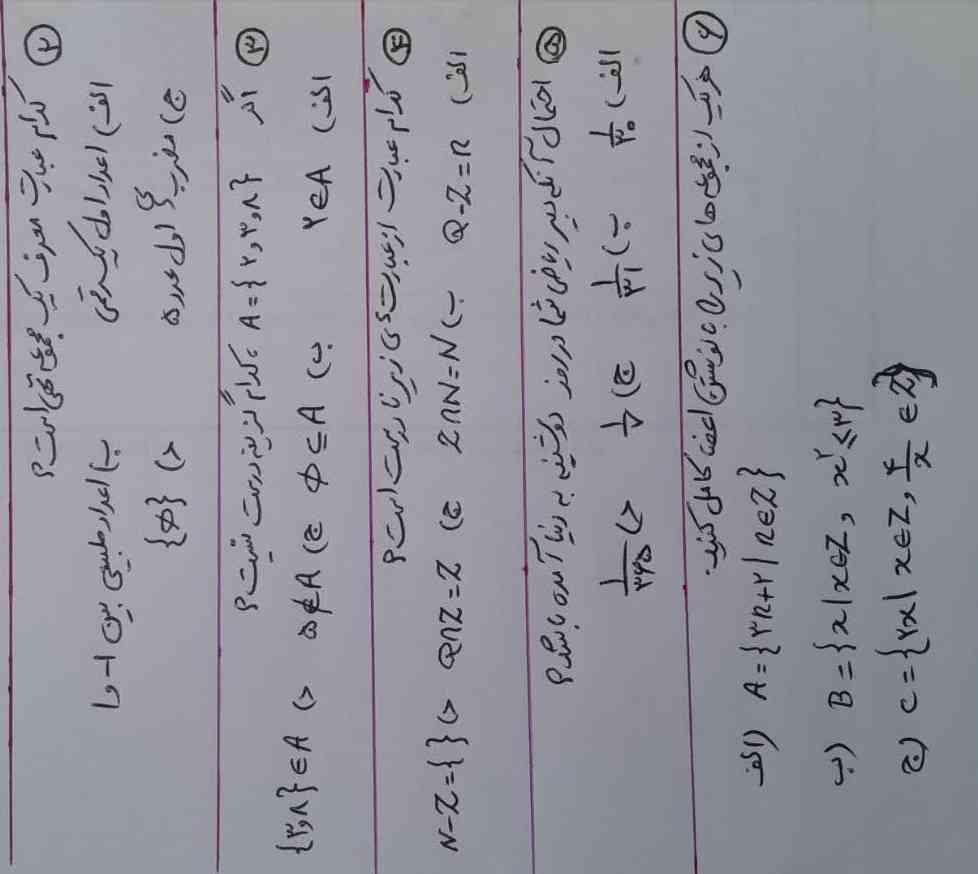 ۲) کدام عبارت معرف یک مجموعه تهی است؟
الف) اعداد اول یک رقمی ب) اعداد طبیعی بین ۱- و ۱
ج) مضرب‌های اول عدد ۵ د) {∅}
۳) اگر A = {۲, ۳, ۸} ، کدام گزینه درست نیست؟
الف) ۲ ∈ A ب) ∅ ⊆ A ج) ۵ ∉ A د) {۳, ۸} ∈ A
۴) کدام عبارت از عبارت‌های زیر نادرست است؟
الف) Q - Z = R ب) Z ∩ N = N ج) Q ∩ Z = Z د) N - Z = { }
۵) احتمال آنکه دبیر ریاضی شما در روز دوشنبه به دنیا آمده باشد؟
الف) ۱/۳۰ ب) ۱/۳۱ ج) ۱/۷ د) ۱/۳۶۵
۶) هریک از مجموعه‌های زیر را با نوشتن اعضا کامل کنید.
الف) A = {۳n + ۲ | n ∈ Z}
ب) B = {x | x ∈ Z, x² ≤ ۳}
ج) C = {۲x | x ∈ Z, ۴/x ∈ Z}